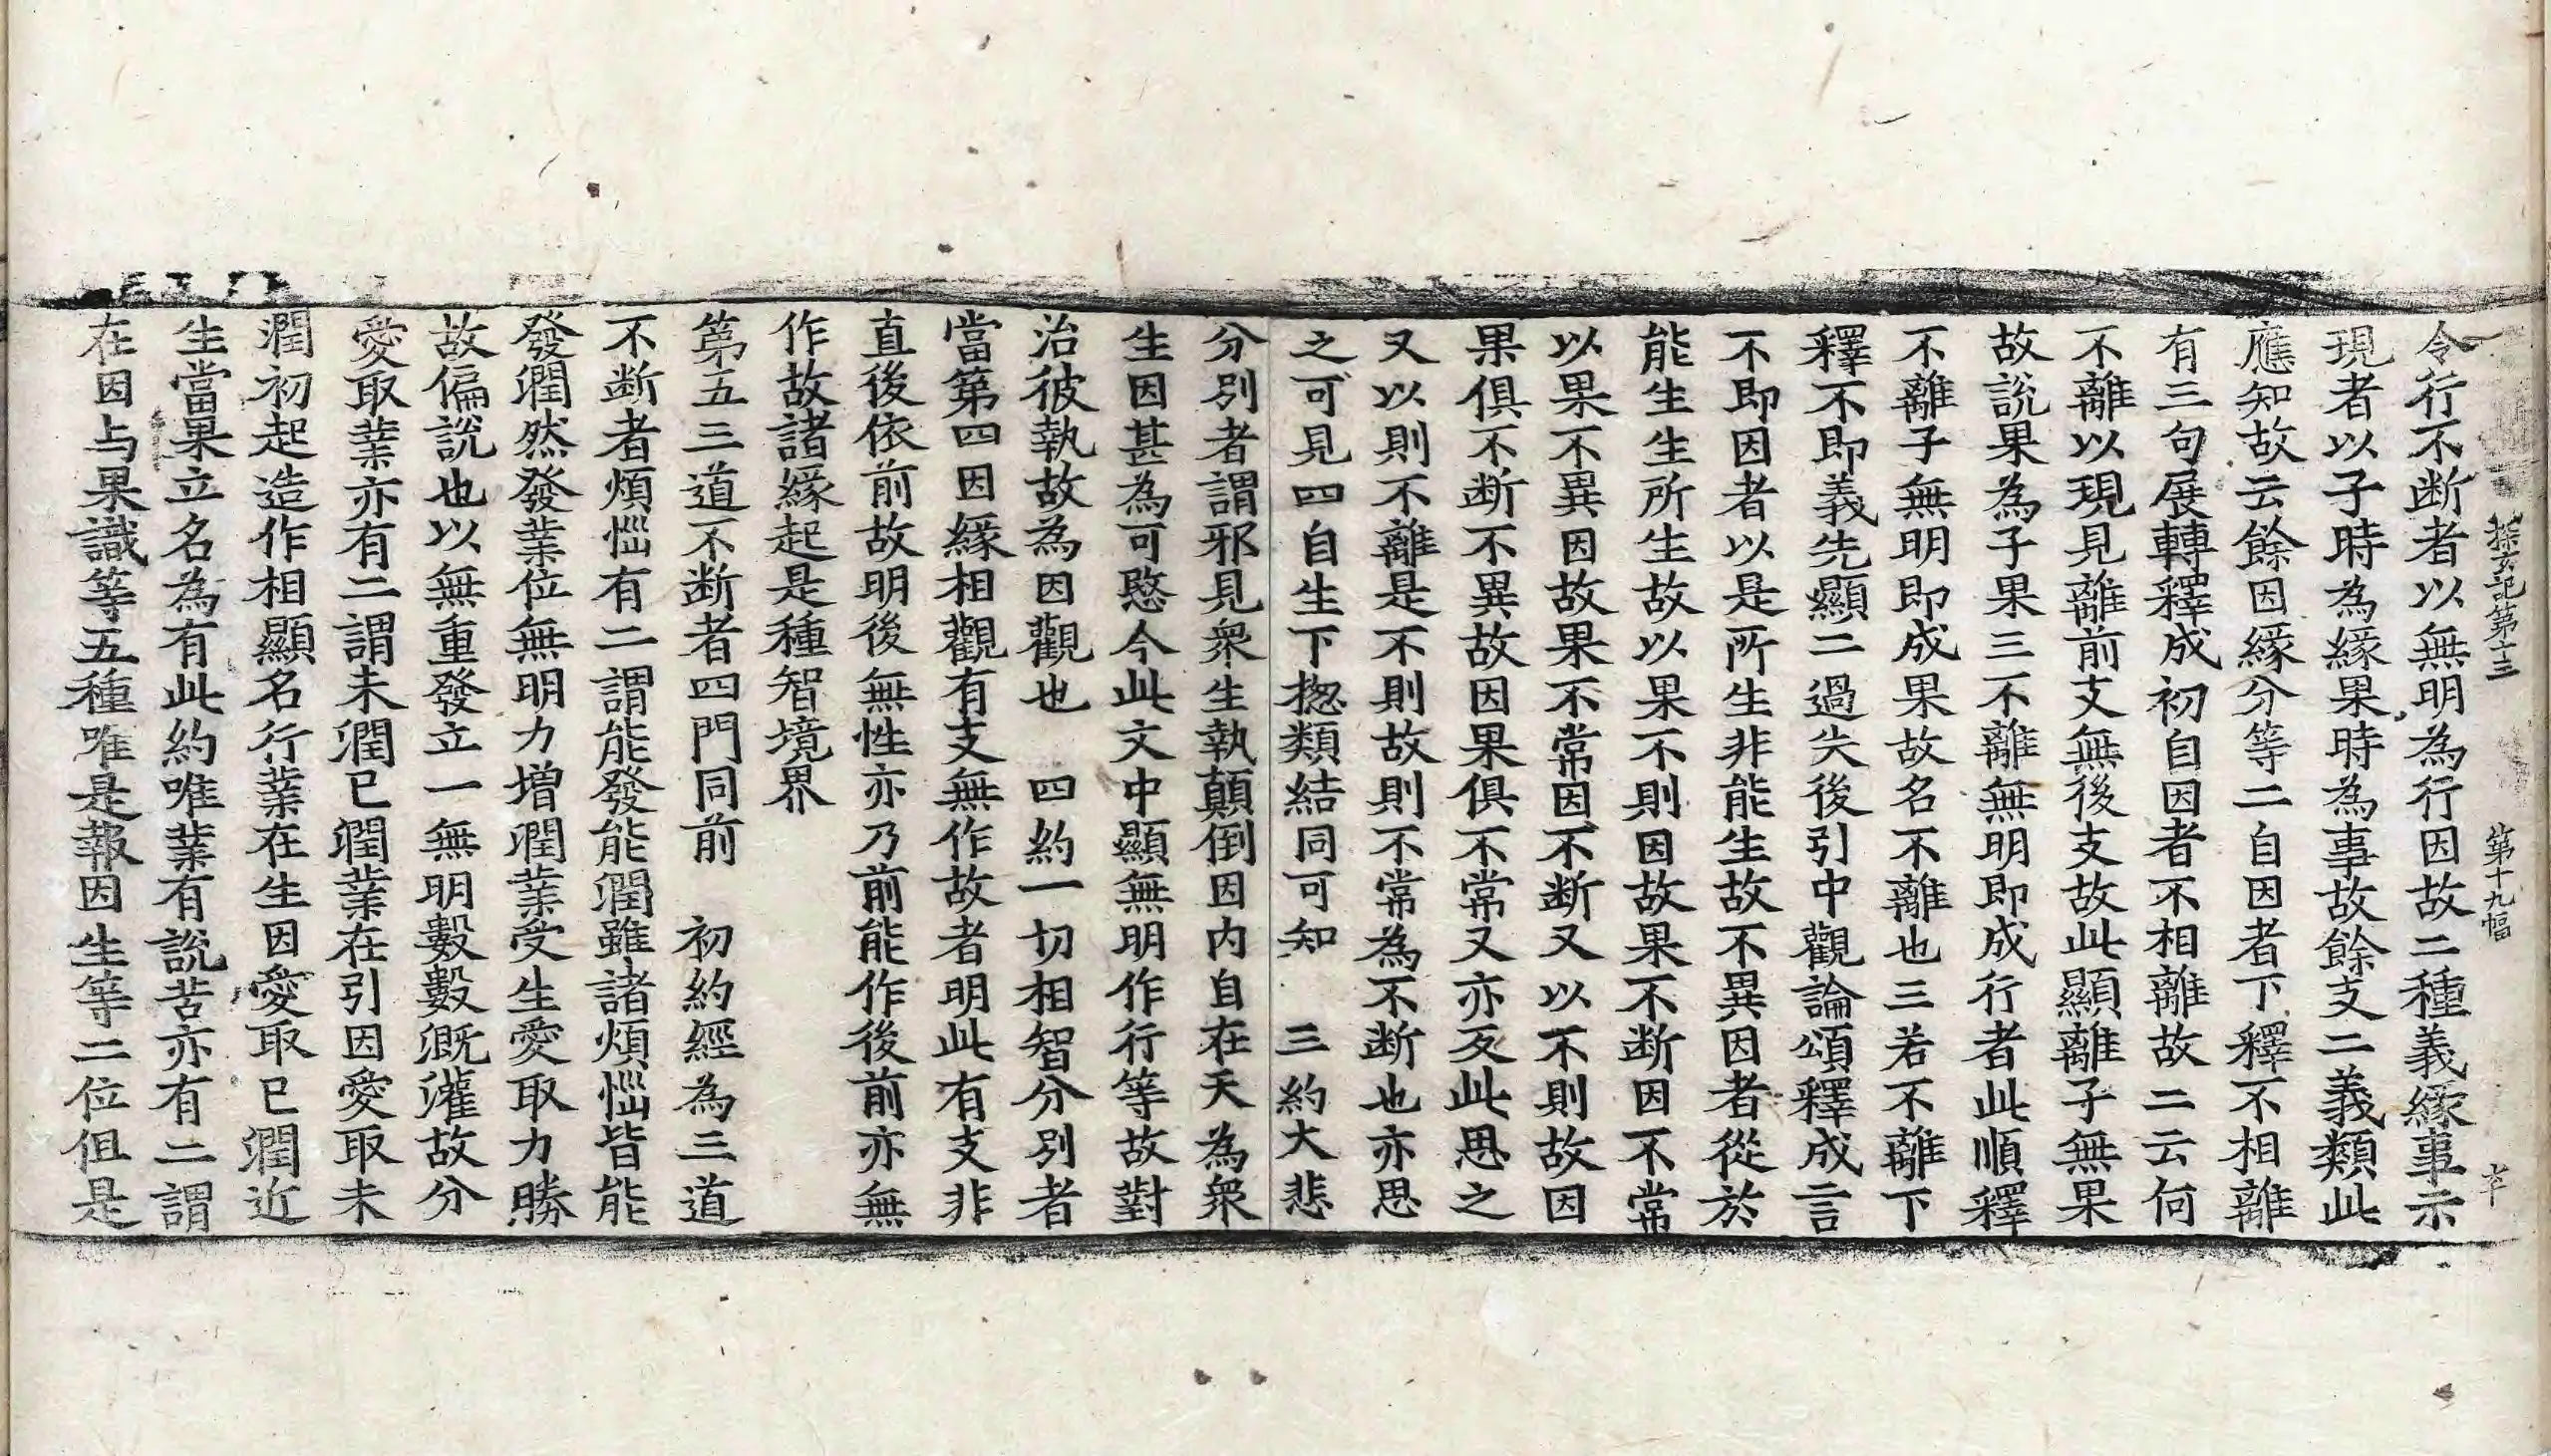 探玄記第十三　第十九幅　卒
令行不断者以無明為行因故二種義緣事示
現者以子時為緣果時為事故餘支二義類此
應知故云餘因緣分等二自因者下釋不相離
有三句展轉釋成初自因者不相離故二云何
不離以現見離前支無後支故此顯離子無果
故說果為子果三不離無明即成行者此順釋
不離子無明即成果故名不離也三若不離下
釋不即義先顯二過失後引中觀論頌釋成言
不即因者以是所生非能生故不異因者從於
能生生所生故以果不則因故果不断因不常
以果不異因故果不常因不断又以不則故因
果俱不断不異故因果俱不常又亦反此思之
又以則不離是不則故則不常為不断也亦思
之可見四自生下揔類結同可知　三約大悲
分別者謂邪見衆生執顛倒因内自在天為衆
生因甚為可愍今此文中顯無明作行等故對
治彼執故為因觀也　四約一切相智分別者
當第四因緣相觀有支無作故者明此有支非
直後依前故明後無性亦乃前能作後前亦無
作故諸緣起是種智境界
第五三道不断者四門同前　初約經為三道
不断者煩惱有二謂能發能潤雖諸煩惱皆能
發潤然發業位無明力增潤業受生愛取力勝
故偏說也以無重發立一無明數數溉灌故分
愛取業亦有二謂未潤已潤業在引因愛取未
潤初起造作相顯名行業在生因愛取已潤近
生當果立名為有此約唯業有說苦亦有二謂
在因与果識等五種唯是報因生等二位但是